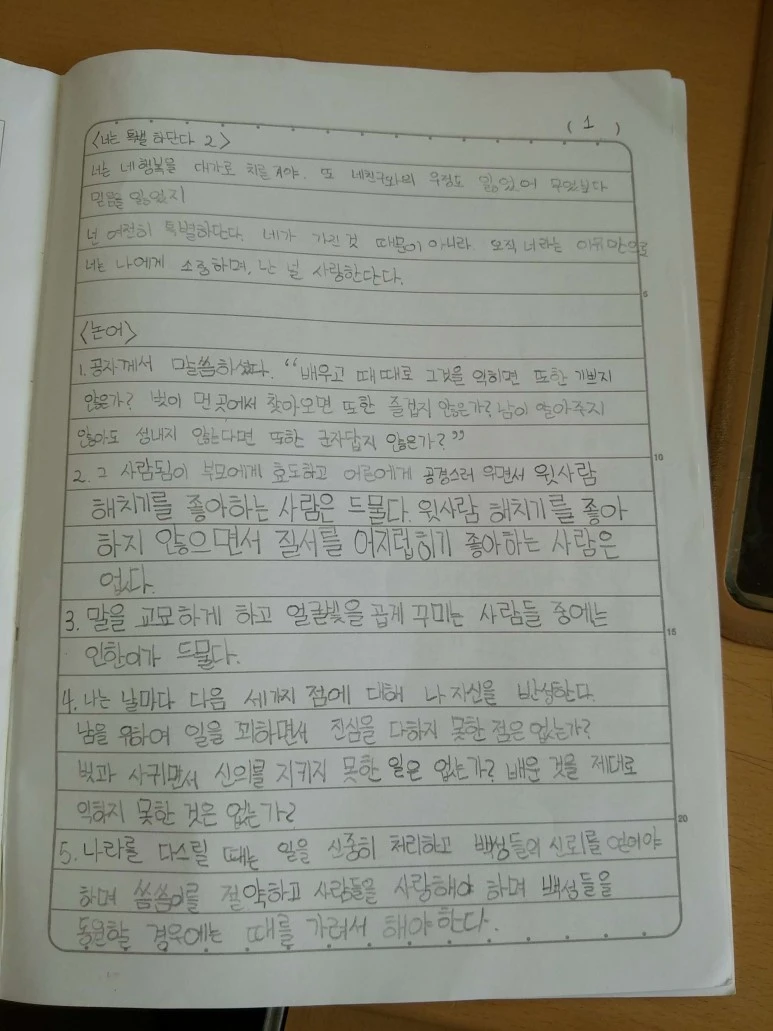 ( 1 )
<너는 특별 하단다 2>
너는 네 행복을 대가로 치른거야. 또 네친구와의 우정도 잃었어 무엇보다
믿음을 잃었지
넌 여전히 특별하단다. 네가 가진 것 때문이 아니라. 오직 너라는 이유만으로
너는 나에게 소중하며, 난 널 사랑한단다.
5
<논어>
1. 공자께서 말씀하셨다. “배우고 때때로 그것을 익히면 또한 기쁘지
않은가? 벗이 먼 곳에서 찾아오면 또한 즐겁지 않은가? 남이 알아주지
않아도 성내지 않는다면 또한 군자답지 않은가?”
10
2. 그 사람됨이 부모에게 효도하고 어른에게 공경스러 우면서 윗사람
해치기를 좋아하는 사람은 드물다. 윗사람 해치기를 좋아
하지 않으면서 질서를 어지럽히기 좋아하는 사람은
없다.
3. 말을 교묘하게 하고 얼굴빛을 곱게 꾸미는 사람들 중에는
15
인한이가 드물다.
4. 나는 날마다 다음 세가지 점에 대해 나 자신을 반성한다.
남을 위하여 일을 꾀하면서 진심을 다하지 못한 점은 없는가?
벗과 사귀면서 신의를 지키지 못한 일은 없는가? 배운 것을 제대로
익히지 못한 것은 없는가?
20
5. 나라를 다스릴 때는 일을 신중히 처리하고 백성들의 신뢰를 얻어야
하며 씀씀이를 절약하고 사람들을 사랑해야 하며 백성들을
동원할 경우에는 때를 가려서 해야 한다.